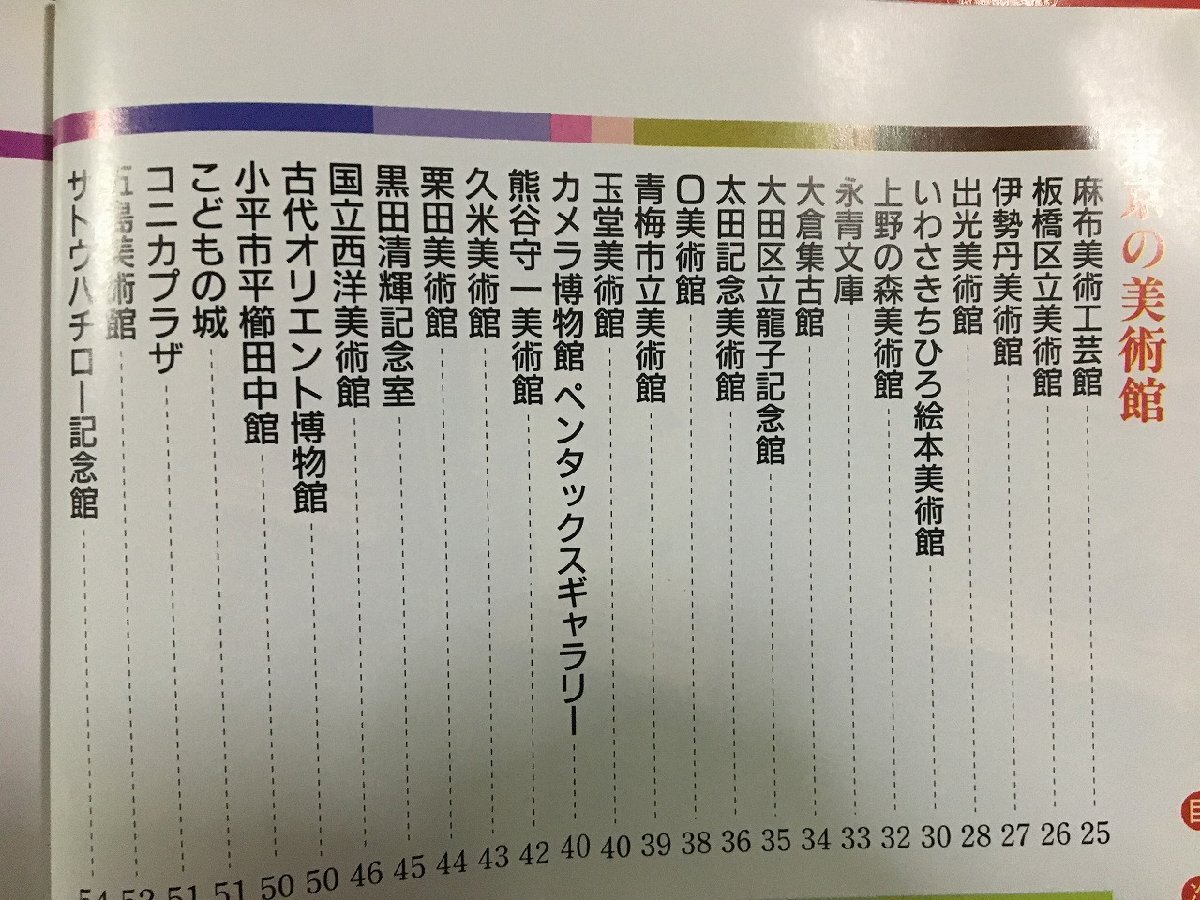 東京の美術館
麻布美術工芸館 25
板橋区立美術館 26
伊勢丹美術館 27
出光美術館 28
いわさきちひろ絵本美術館 30
上野の森美術館 32
永青文庫 33
大倉集古館 34
大田区立龍子記念館 35
太田記念美術館 36
O美術館 38
青梅市立美術館 39
玉堂美術館 40
カメラ博物館 ペンタックスギャラリー 40
熊谷守一美術館 42
久米美術館 43
栗田美術館 44
黒田清輝記念室 45
国立西洋美術館 46
古代オリエント博物館 50
小平市平櫛田中館 50
こどもの城 51
コニカプラザ 51
五島美術館 52
サトウハチロー記念館 54
目
次